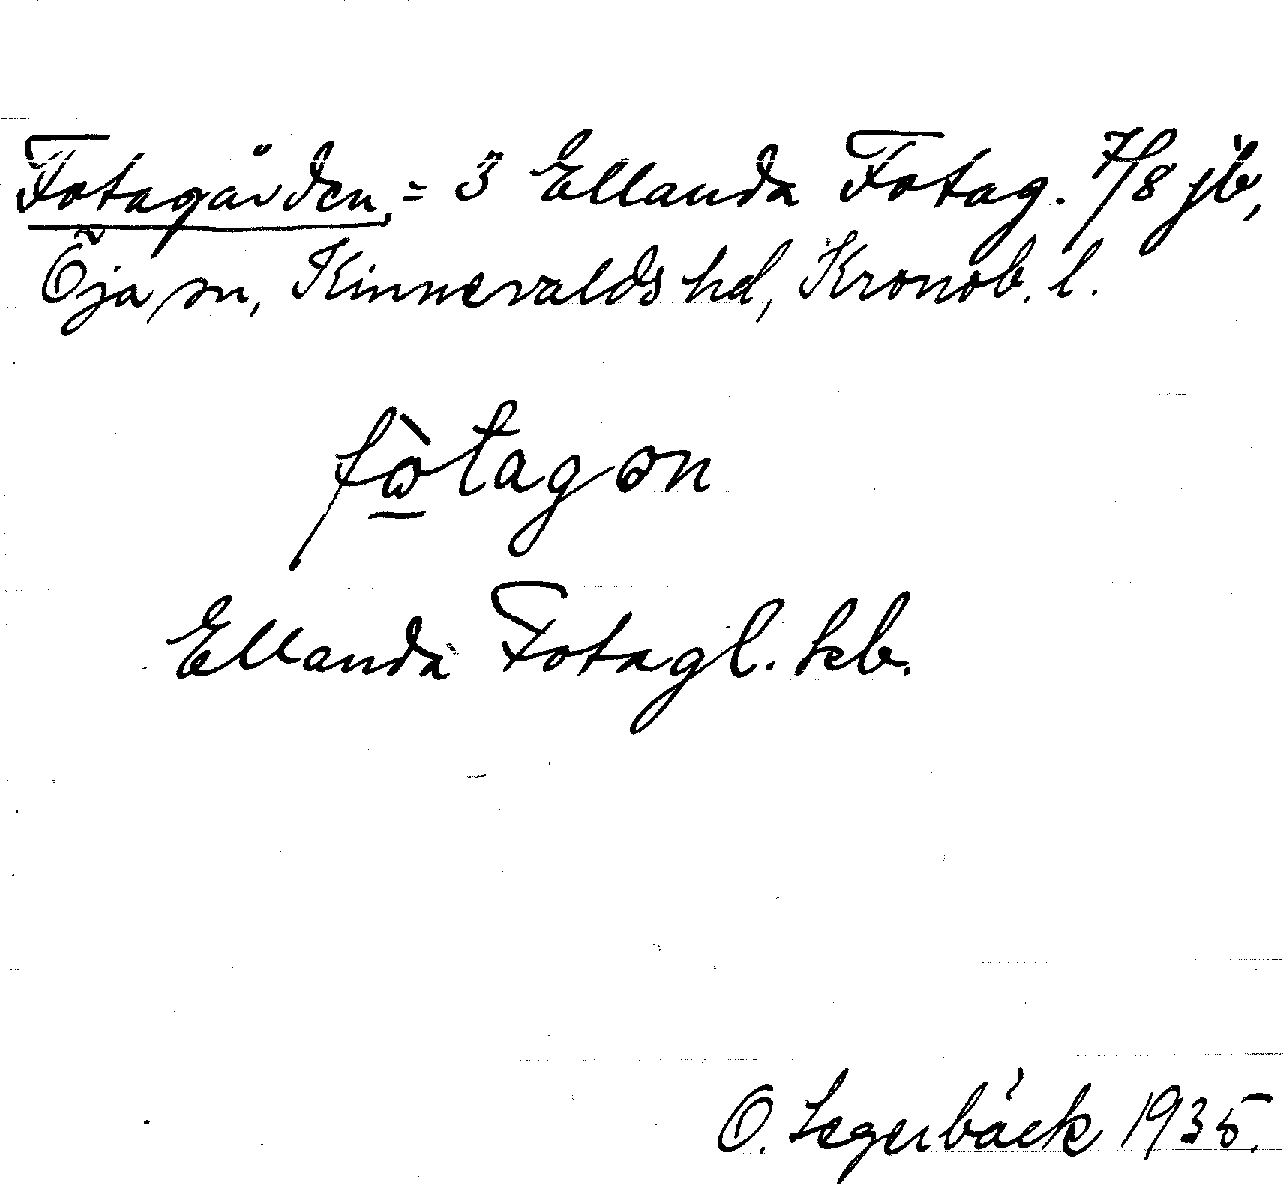 Fotagården, = 3 Ellanda Fotag. 7/8 jb,
Öja sn, Kinnevalds hd, Kronob. l.
fὼ̱tagən
Ellanda Fotagl. kb.
O. Segerbäck 1935.